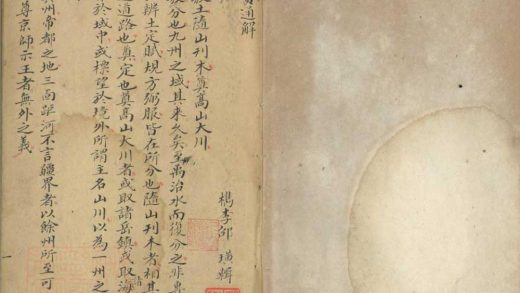 貢通解
檇李邵 璜輯
土隨山刊木奠高山大川
分也九州之域其來久矣至禹治水而復分之非專
辨土定賦規方弼服皆在所分也隨山刊木者相其
道路也奠定也奠高山大川者或取諸岳鎮或取海
於域中或標望於境外所謂主名山川以為一州之
州帝都之地三面距河不言疆界者以餘州所至可
尊京師示王者無外之義
一